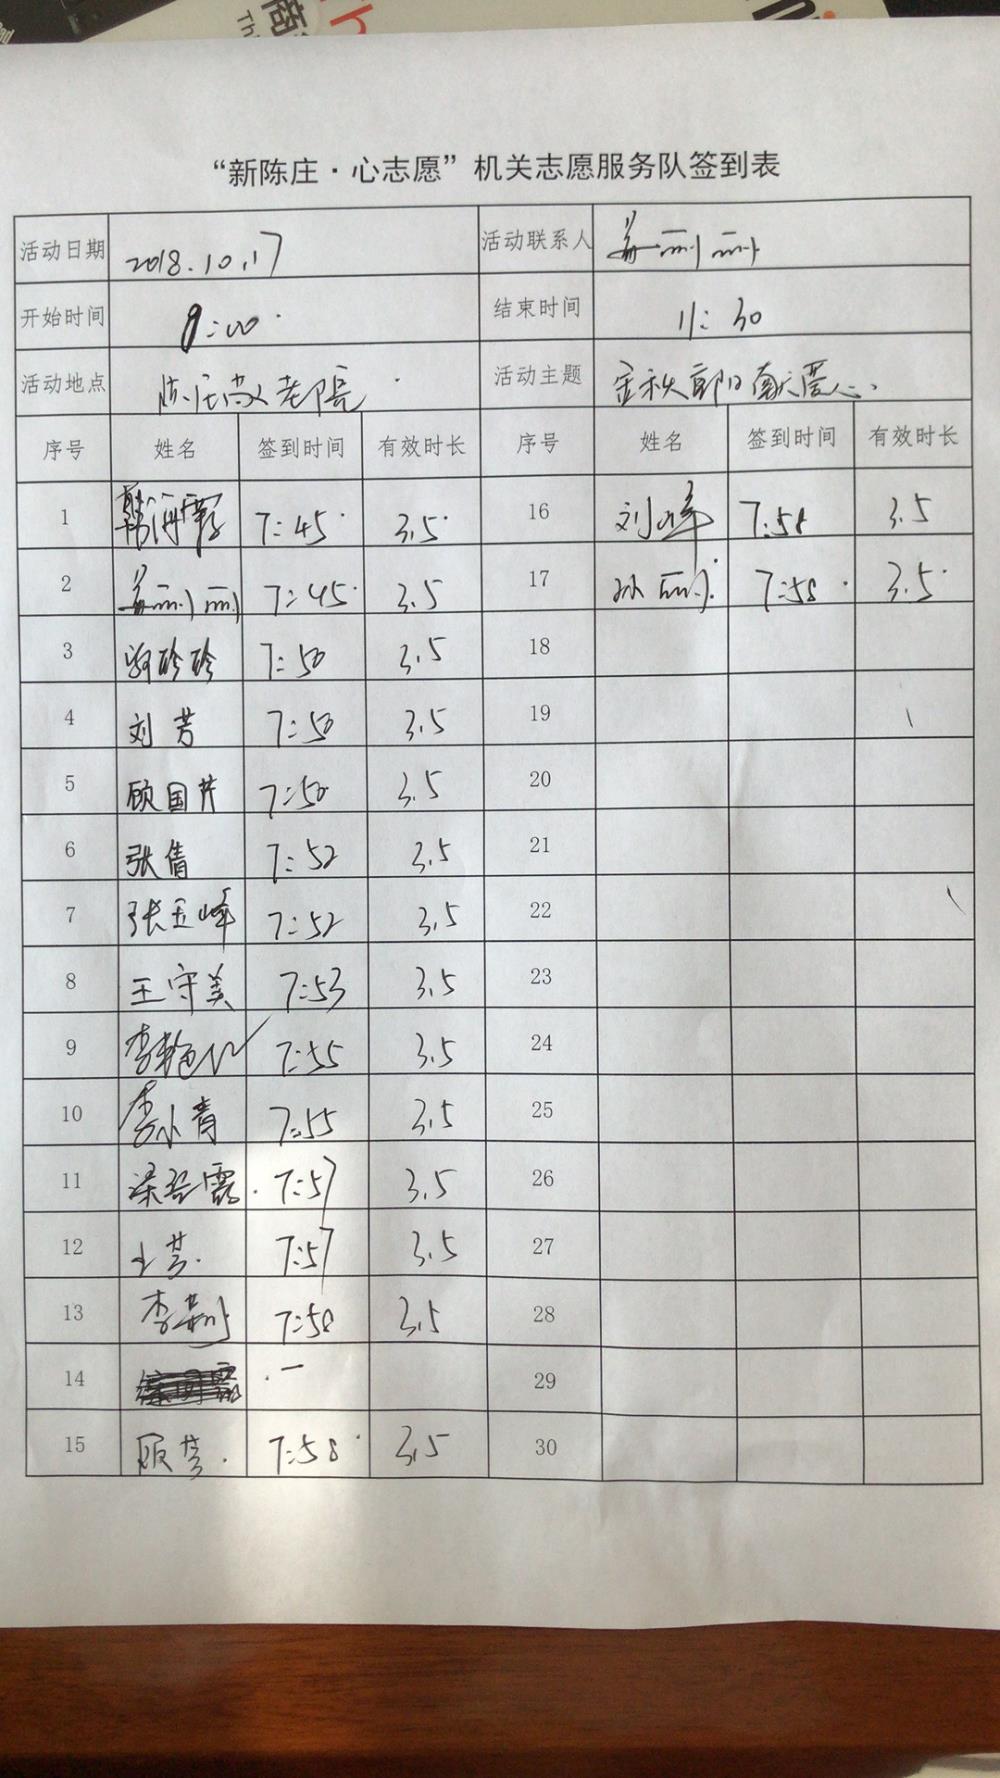 商
Th
“新陈庄·心志愿”机关志愿服务队签到表
活动日期 2018.10.17 活动联系人 姜丽丽
开始时间 8:00 结束时间 11:30
活动地点 陈庄敬老院 活动主题 金秋 日献爱心
序号 姓名 签到时间 有效时长 序号 姓名 签到时间 有效时长
1 韩海霞 7:45 3.5 16 刘峰 7:58 3.5
2 姜丽丽 7:45 3.5 17 孙丽 7:58 3.5
3 珍珍 7:50 3.5 18
4 刘芳 7:50 3.5 19
5 顾国芹 7:50 3.5 20
6 张倩 7:52 3.5 21
7 张玉峰 7:52 3.5 22
8 王守美 7:53 3.5 23
9 李艳 7:55 3.5 24
10 李小青 7:55 3.5 25
11 梁 霞 7:57 3.5 26
12 7:57 3.5 27
13 李 7:58 3.5 28
14 29
15 7:58 3.5 30